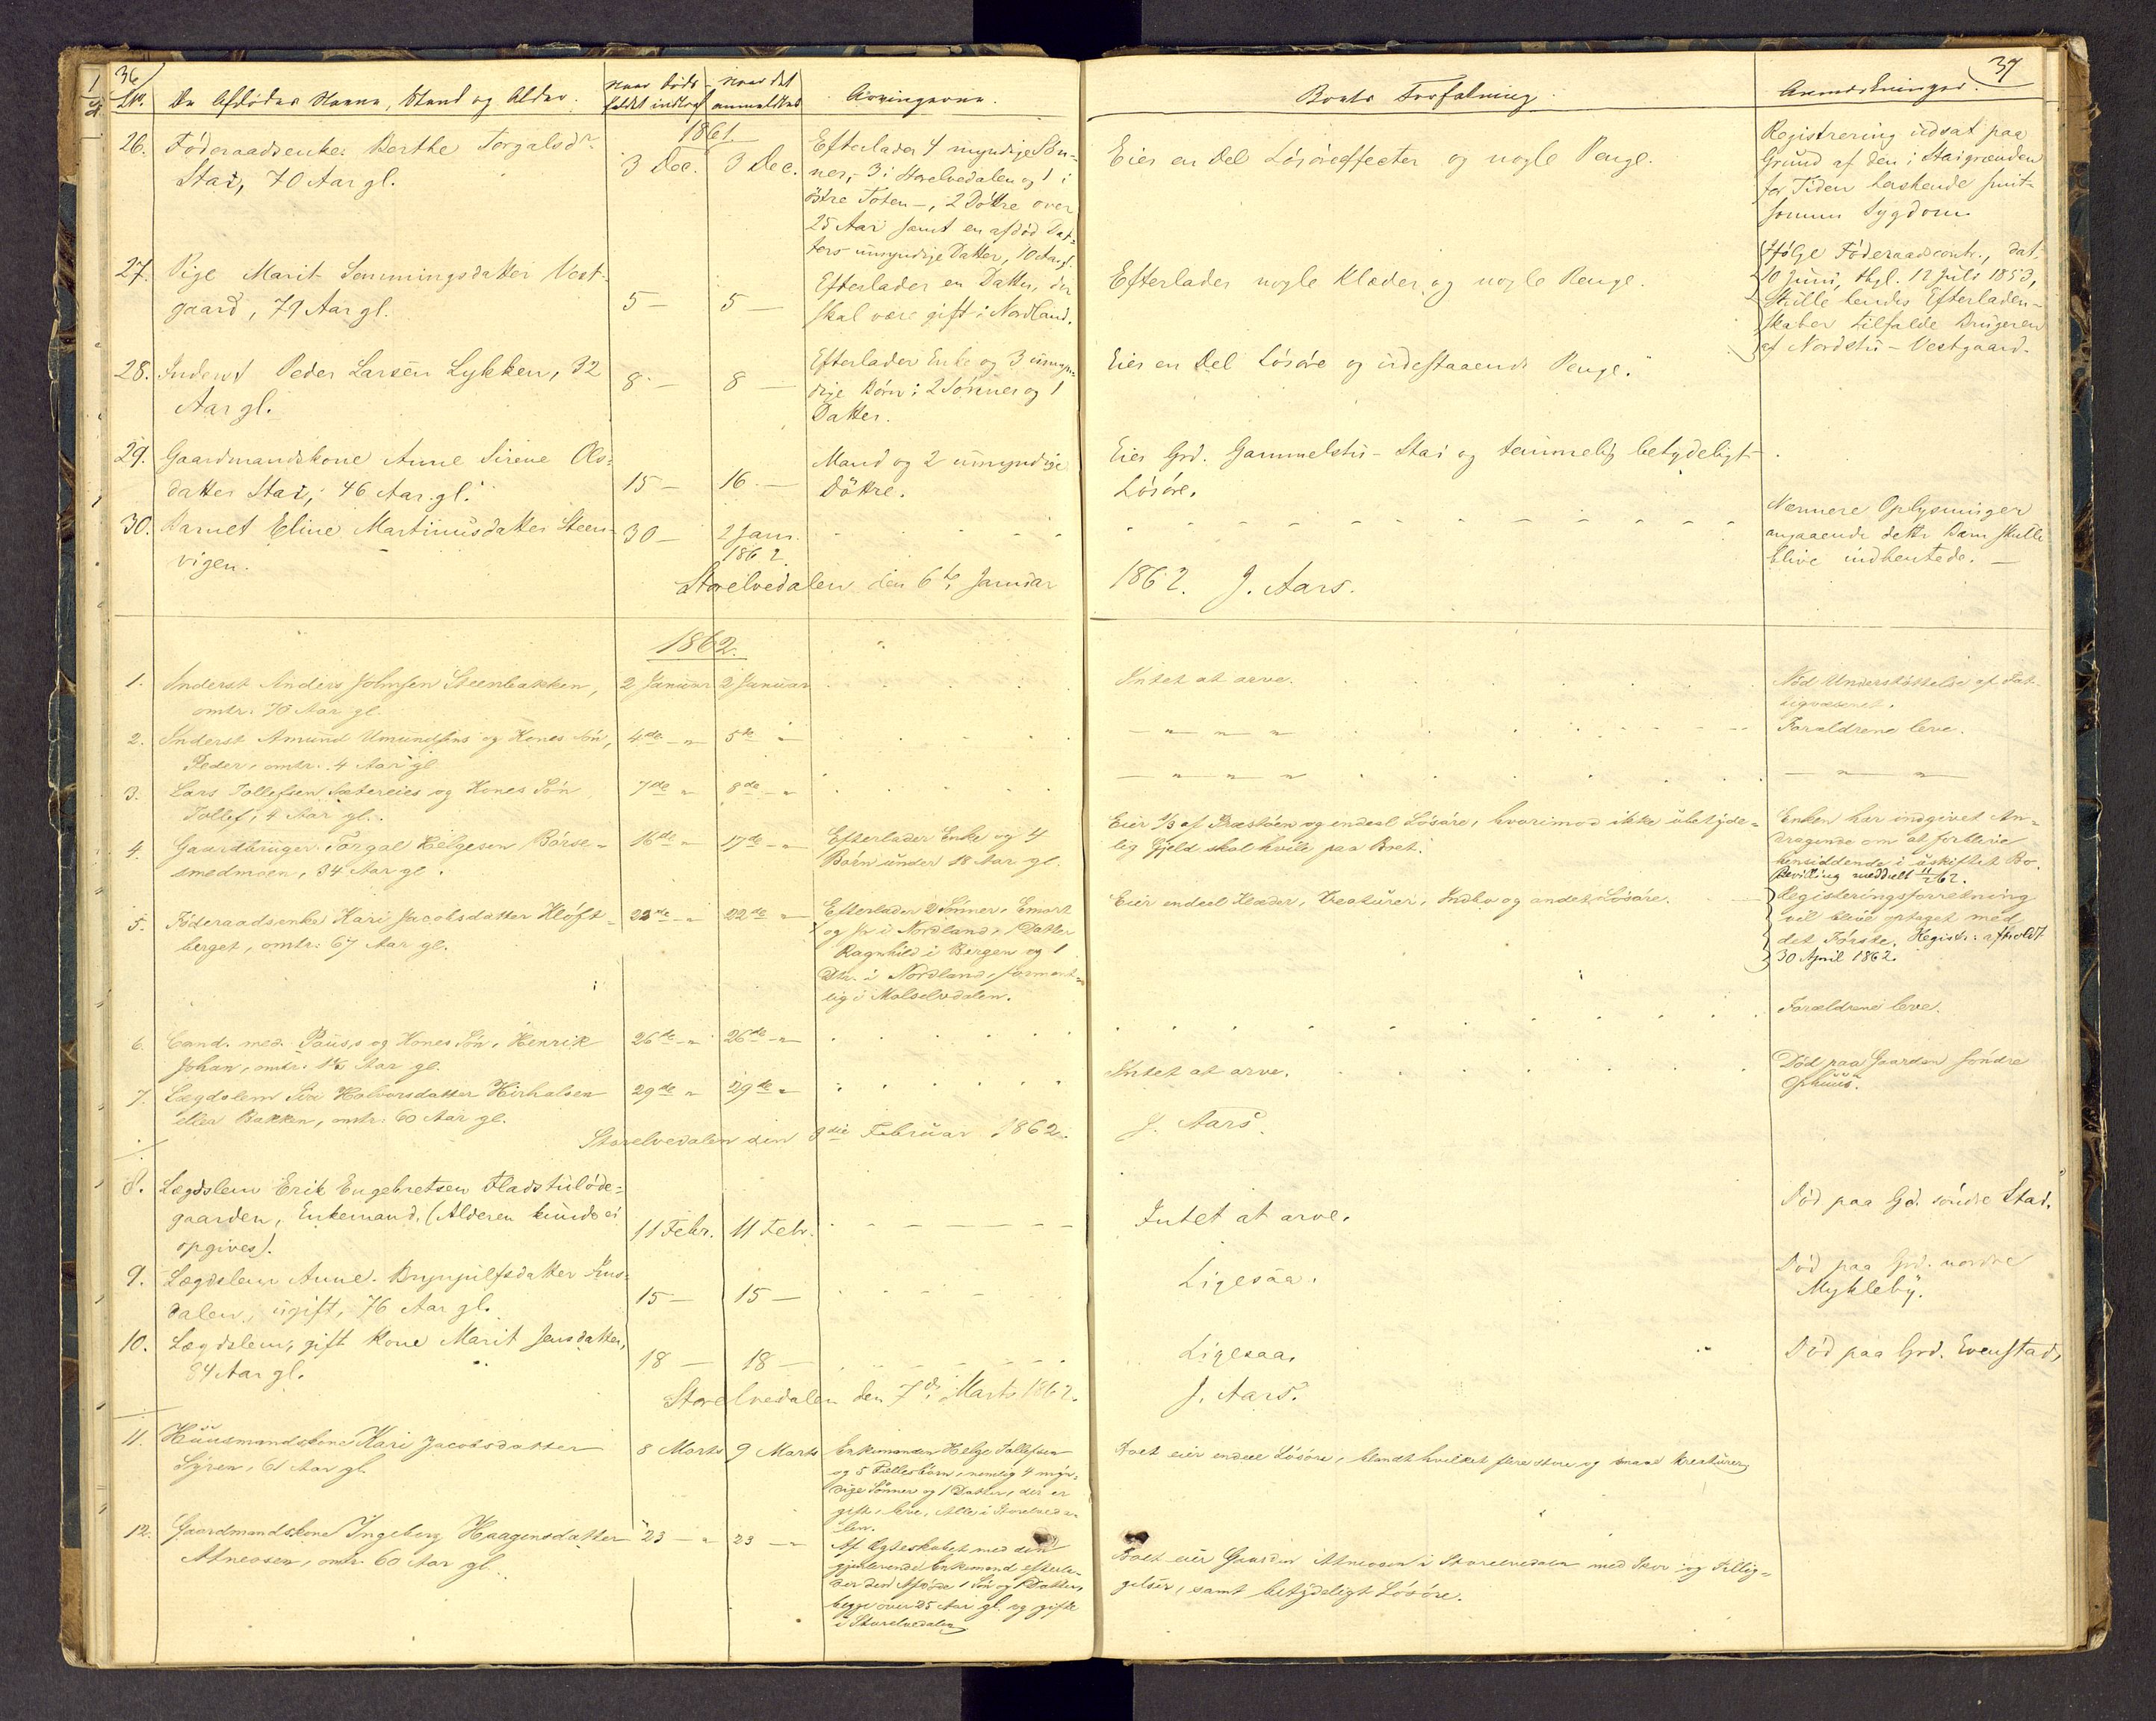 36
No. De Afdødes Navne, Stand og Alder. Naar Døds- Naar det Arvingerne.
faldet indtraf anmeldtes
1861.
26. Föderaadsenke Berthe Torgalsdr
Stai, 70 Aar gl.
3 Dec. 3 Dec.
Efterlader 4 myndige Søn-
ner, 3 i Storelvedalen og 1 i
östre Toten -, 2 Döttre over
25 Aar samt en afdöd Dat-
ters umyndige Datter, 10 Aar gl.
27. Pige Marit Semmingsdatter Vest-
gaard, 71 Aar gl.
5 — 5 —
Efterlader en Datter, der
skal være gift i Nordland.
28. Inderst Peder Larsen Lykken, 32
Aar gl.
8 — 8 —
Efterlader Enke og 3 umyn-
dige Børn: 2 Sönner og 1
Datter.
29. Gaardmandskone Anne Sirene Ols-
datter Stai, 46 Aar gl.
15 — 16 —
Mand og 2 umyndige
Döttre.
30. Barnet Eline Martinusdatter Steen-
vigen.
30 — 2 Janr.
1862.
Storelvedalen den 6te Januar
1862.
1. Inderst Anders Johnsen Steenbakken,
omtr. 76 Aar gl.
2 Januar 2 Januar
2. Inderst Amund Amundsens og Kones Sön,
Peder, omtr. 4 Aar gl.
4de - " 5te - "
3. Lars Tollefsen Sætereies og Kones Sön
Tollef, 4 Aar gl.
7de " 8de - "
4. Gaardbruger Torgal Helgesen Börse-
smedmoen, 34 Aar gl.
16de " 17de - "
Efterlader Enke og 4
Börn under 18 Aar gl.
5. Föderaadsenke Kari Jacobsdatter Klöft-
berget, omtr. 67 Aar gl.
22de - " 22de "
Efterlader 2 Sönner, Emort
og i Nordland, 1 Datter
Ragnhild i Bergen og 1
Dtr. i Nordland, forment-
lig i Malselvdalen.
6. Cand. med. Pauss og Kones Sön, Henrik
Johan, omtr. 1½ Aar gl.
26de - " 26de - "
7. Lægdslem Siri Halvorsdatter Kirkalsen
eller Bakken, omtr. 60 Aar gl.
29de " 29de "
Storelvedalen den 3die Februar 1862.
8. Lægdslem Erik Engebretsen Fladstulöde-
gaarden, Enkemand, (Alderen kunde ei
opgives).
11 Febr. 11 Febr.
9. Lægdslem Anne Brynjulfsdatter
dalen, ugift, 76 Aar gl.
15 — 15 —
10. Lægdslem, gift Kone Marit Jensdatter,
84 Aar gl.
18 — 18 —
Storelvedalen den 7de Marts 1862.
11. Huusmandskone Kari Jacobsdatter
Syren, 61 Aar gl.
8 Marts 9 Marts
Enkemanden Helge Tollefsen
og 5 Fællesbörn, nemlig 4 myn-
dige Sönner og 1 Datter, der er
gift, leve, Alle i Storelveda-
len.
12. Gaardmandskone Ingeborg Haagensdatter
Atneosen, omtr. 60 Aar gl.
23 — " 23 — "
Af Ægteskabet med den
gjenlevende Enkemand efterla-
der den Afdöde 1 Sön og 1 Datter,
begge over 25 Aar gl. og gifte
i Storelvedalen
37
Boets Forfatning. Anmærkninger.
Eier en Del Lösöreeffecter og nogle Penge.
Registrering udsat paa
Grund af den i Staigrænden
for Tiden herskende smit-
somme Sygdom.
Efterlader nogle Klæder og nogle Penge.
Ifölge Föderaadscontr., dat.
10 Juni, thgl. 12 Juli 1853,
skulle hendes Efterladen-
skaber tilfalde Brugeren
af Nordstu-Vestgaard.
Eier en Del Lösöre og udestaaende Penge.
Eier Grd. Gammelstu-Stai og temmelig betydeligt
Lösöre.
Nærmere Oplysninger
angaaende dette Barn skulle
blive indhentede. —
1862. J. Aars.
Intet at arve.
Nöd Understöttelse af Fat-
tigvæsenet.
— " " "
Forældrene leve.
— " " "
— " "
Eier 1/3 af Præstöen og endeel Lösöre, hvorimod ikke ubetyde-
lig Gjeld skal hvile paa Boet.
Enken har indgivet An-
dragende om at forblive
hensiddende i uskiftet Bo.
Bevilling meddelt 11/2 62.
Eier endeel Klæder, Kreaturer, Indbo og andet Lösöre.
Registreringsforretning
vil blive optaget med
det Förste. Registr. afholdt
30 April 1862.
Forældrene leve.
Intet at arve.
Död paa Gaarden söndre
Ophuus.
J. Aars.
Intet at arve.
Död paa Gd. söndre Stai.
Ligesaa.
Död paa Grd. nordre
Mykleby.
Ligesaa.
Död paa Grd. Evenstad.
J. Aars.
Boet eier endeel Lösöre, blandt hvilket flere store og smaae Kreaturer
Boet eier Gaarden Atneosen i Storelvedalen med Skov og Tillig-
gelser, samt betydeligt Lösöre.